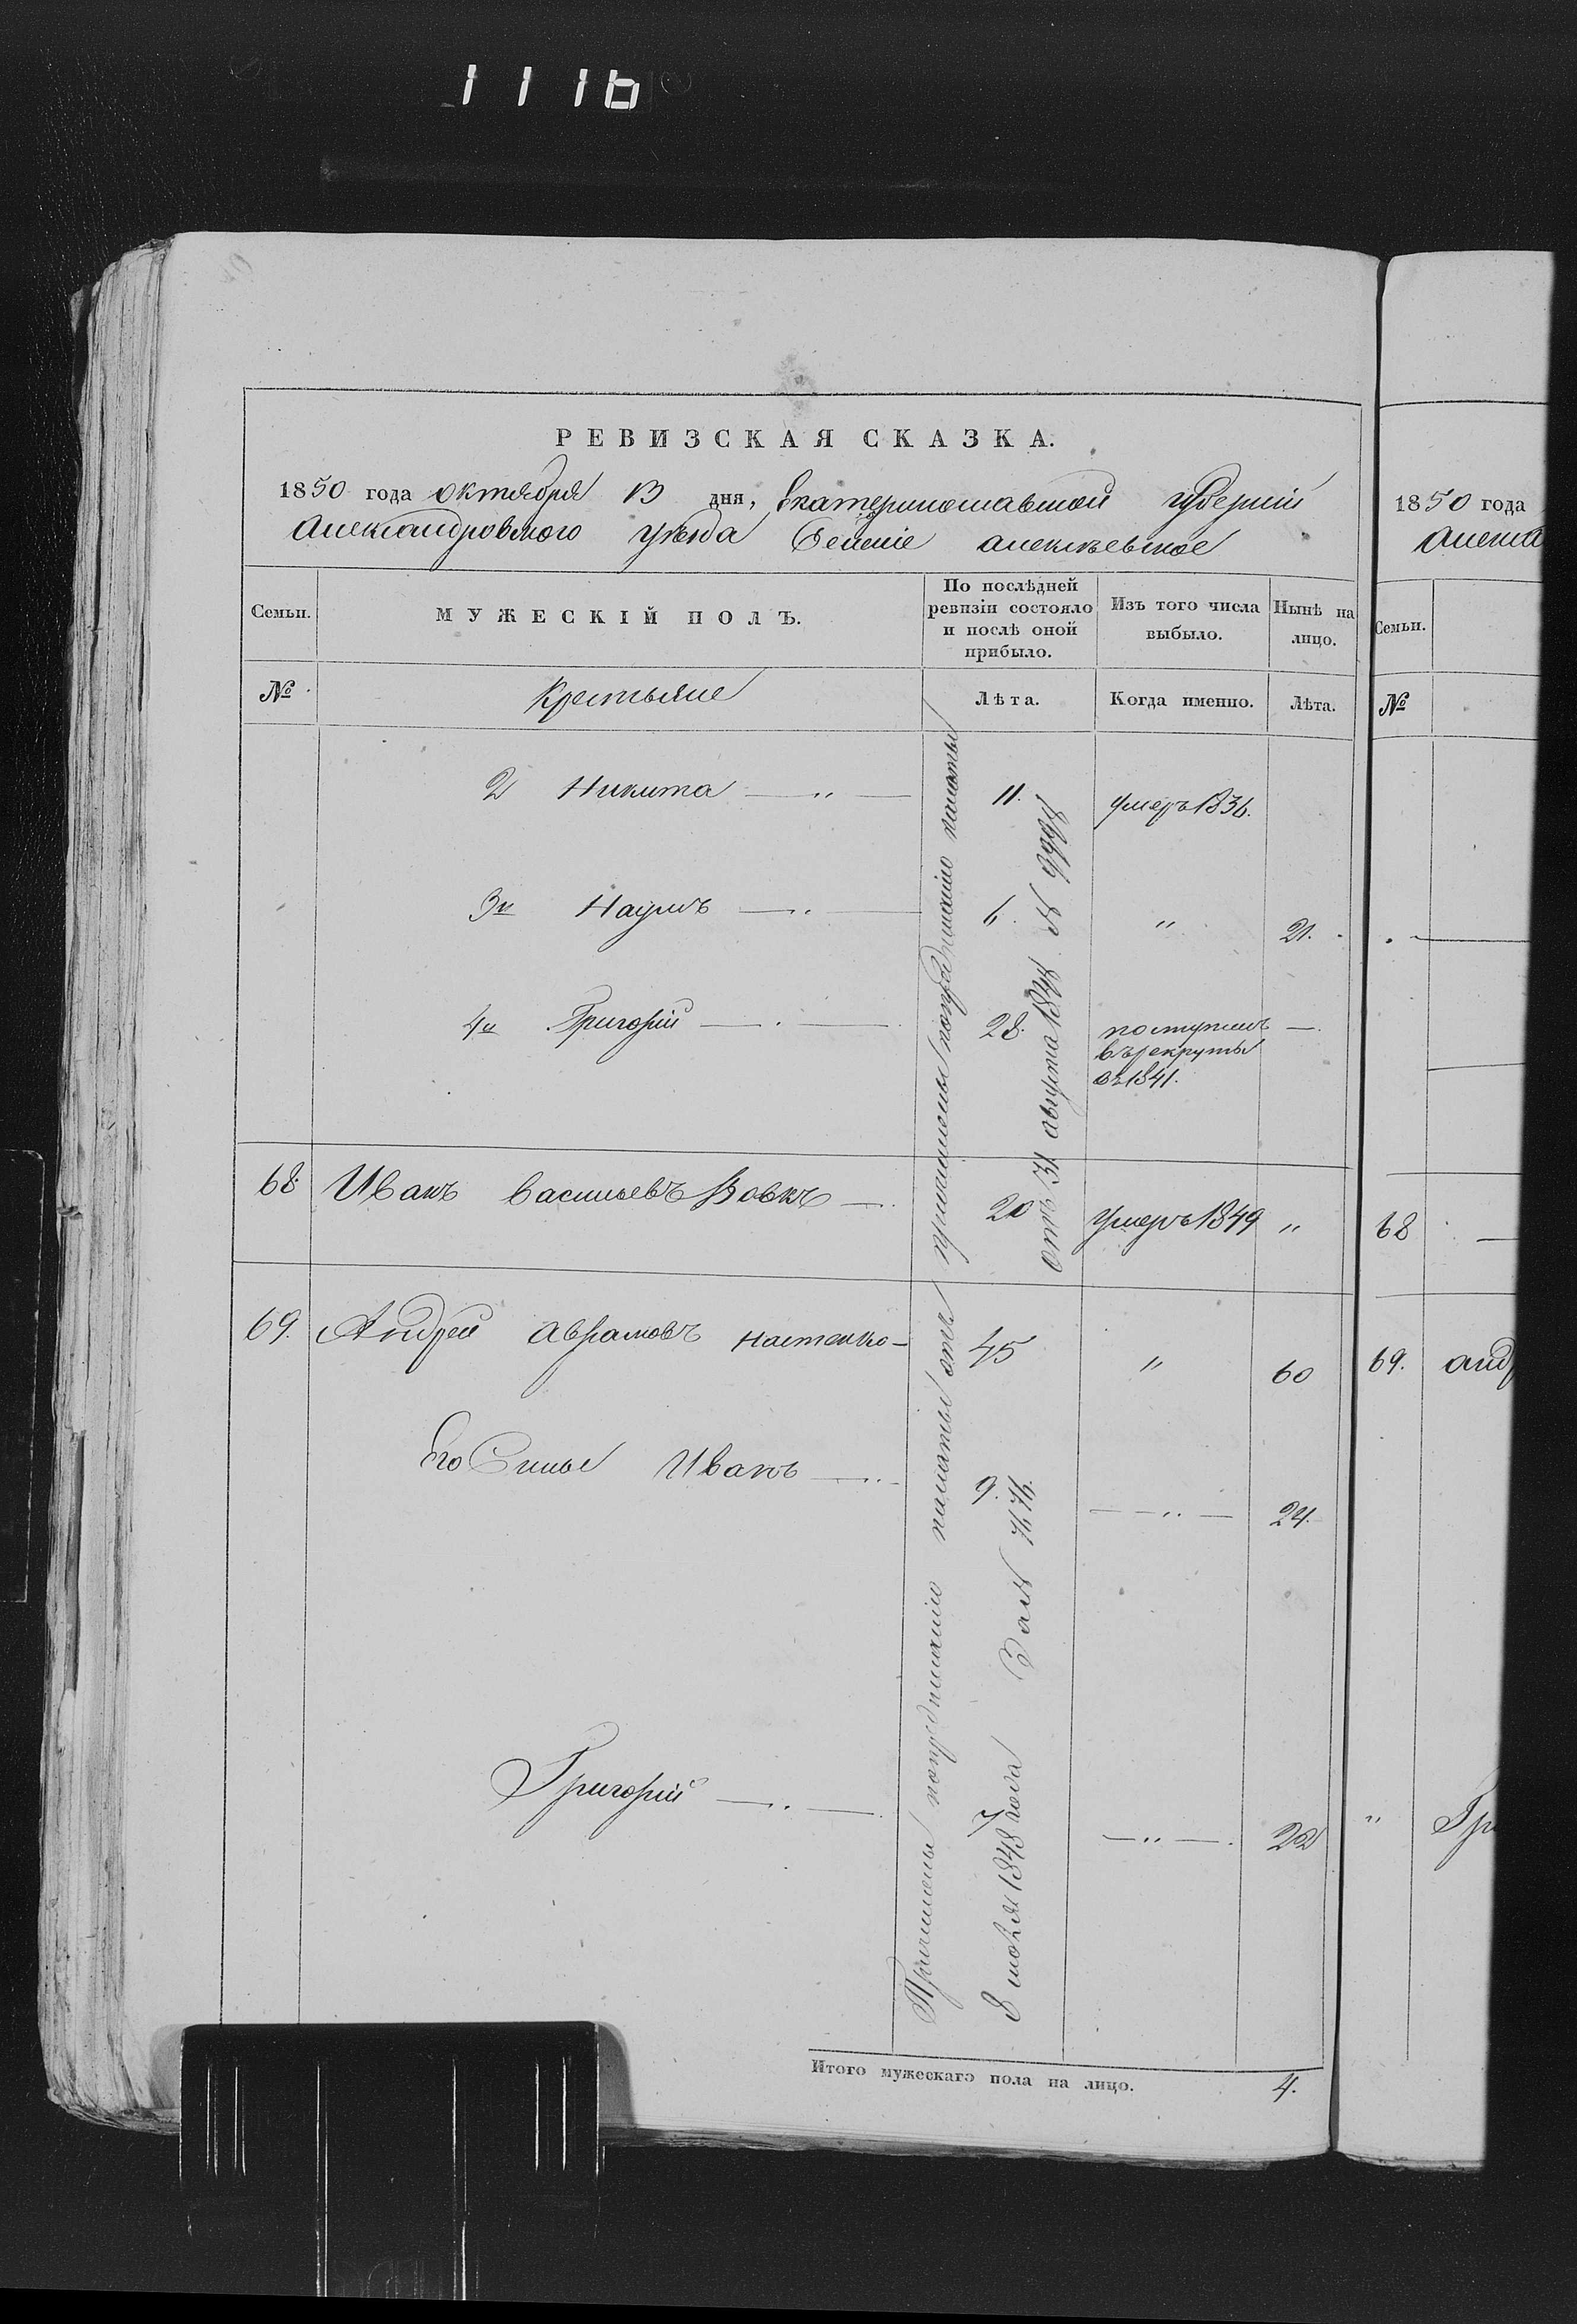 1116
РЕВИЗСКАЯ СКАЗКА.
1850 года октября 13 дня, Екатеринославской губерніи
Александровского уѣзда Селеніе Алексѣевское
Семьи.
МУЖЕСКІЙ ПОЛЪ.
По послѣдней ревизіи состояло и послѣ оной прибыло.
Изъ того числа выбыло.
Нынѣ на лицо.
№
Крестьяне
Лѣта.
Когда именно.
Лѣта.
2 Никита — " — 11. умеръ 1836.
3й Наумъ — " — 6. " 21.
4й Григорій — " — 28. поступилъ —
въ рекруты
въ 1841.
68 Иванъ Васильевъ Вовкъ — 20 умеръ 1849 "
причислены по предписанію палаты
отъ 31 августа 1848 № 9998
69. Андрей Аврамовъ Настенко — 45 " 60
Его Сынъ Иванъ — 9. — " — 24.
Григорій — " — 7 — " — 22
Причислены по предписанію палаты отъ
8 іюля 1848 года За №
Итого мужескаго пола на лицо. 4.
1850 года
Алекса
Семьи.
№
68 —
69. Анд
" Гри